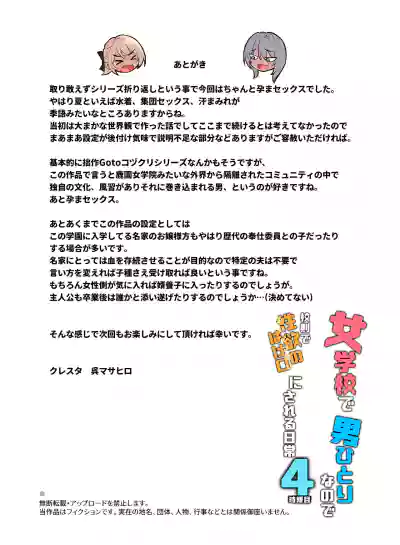 あとがき
取り敢えずシリーズ折り返しという事で今回はちゃんと孕まセックスでした。
やはり夏といえば水着、集団セックス、汗まみれが
季語みたいなところありますからね。
当初は大まかな世界観で作った話でしてここまで続けるとは考えてなかったので
まあまあ設定が後付け気味で説明不足な部分などありますがご容赦いただければ。
基本的に拙作Gotoコヅクリシリーズなんかもそうですが、
この作品で言うと鹿園女学院みたいな外界から隔離されたコミュニティの中で
独自の文化、風習がありそれに巻き込まれる男、というのが好きですね。
あと孕まセックス。
あとあくまでこの作品の設定としては
この学園に入学してる名家のお嬢様方もやはり歴代の奉仕委員との子だったり
する場合が多いです。
名家にとっては血を存続させることが目的なので特定の夫は不要で
言い方を変えれば子種さえ受け取れば良いという事ですね。
もちろん女性側が気に入れば婿養子に入ったりするのでしょうが。
主人公も卒業後は誰かと添い遂げたりするのでしょうか…(決めてない)
そんな感じで次回もお楽しみにして頂ければ幸いです。
クレスタ 呉マサヒロ
女学校で男ひとりなので
校則で性欲のはけ口にされる日常
4時限目
※
無断転載・アップロードを禁止します。
当作品はフィクションです。実在の地名、団体、人物、行事などとは関係御座いません。